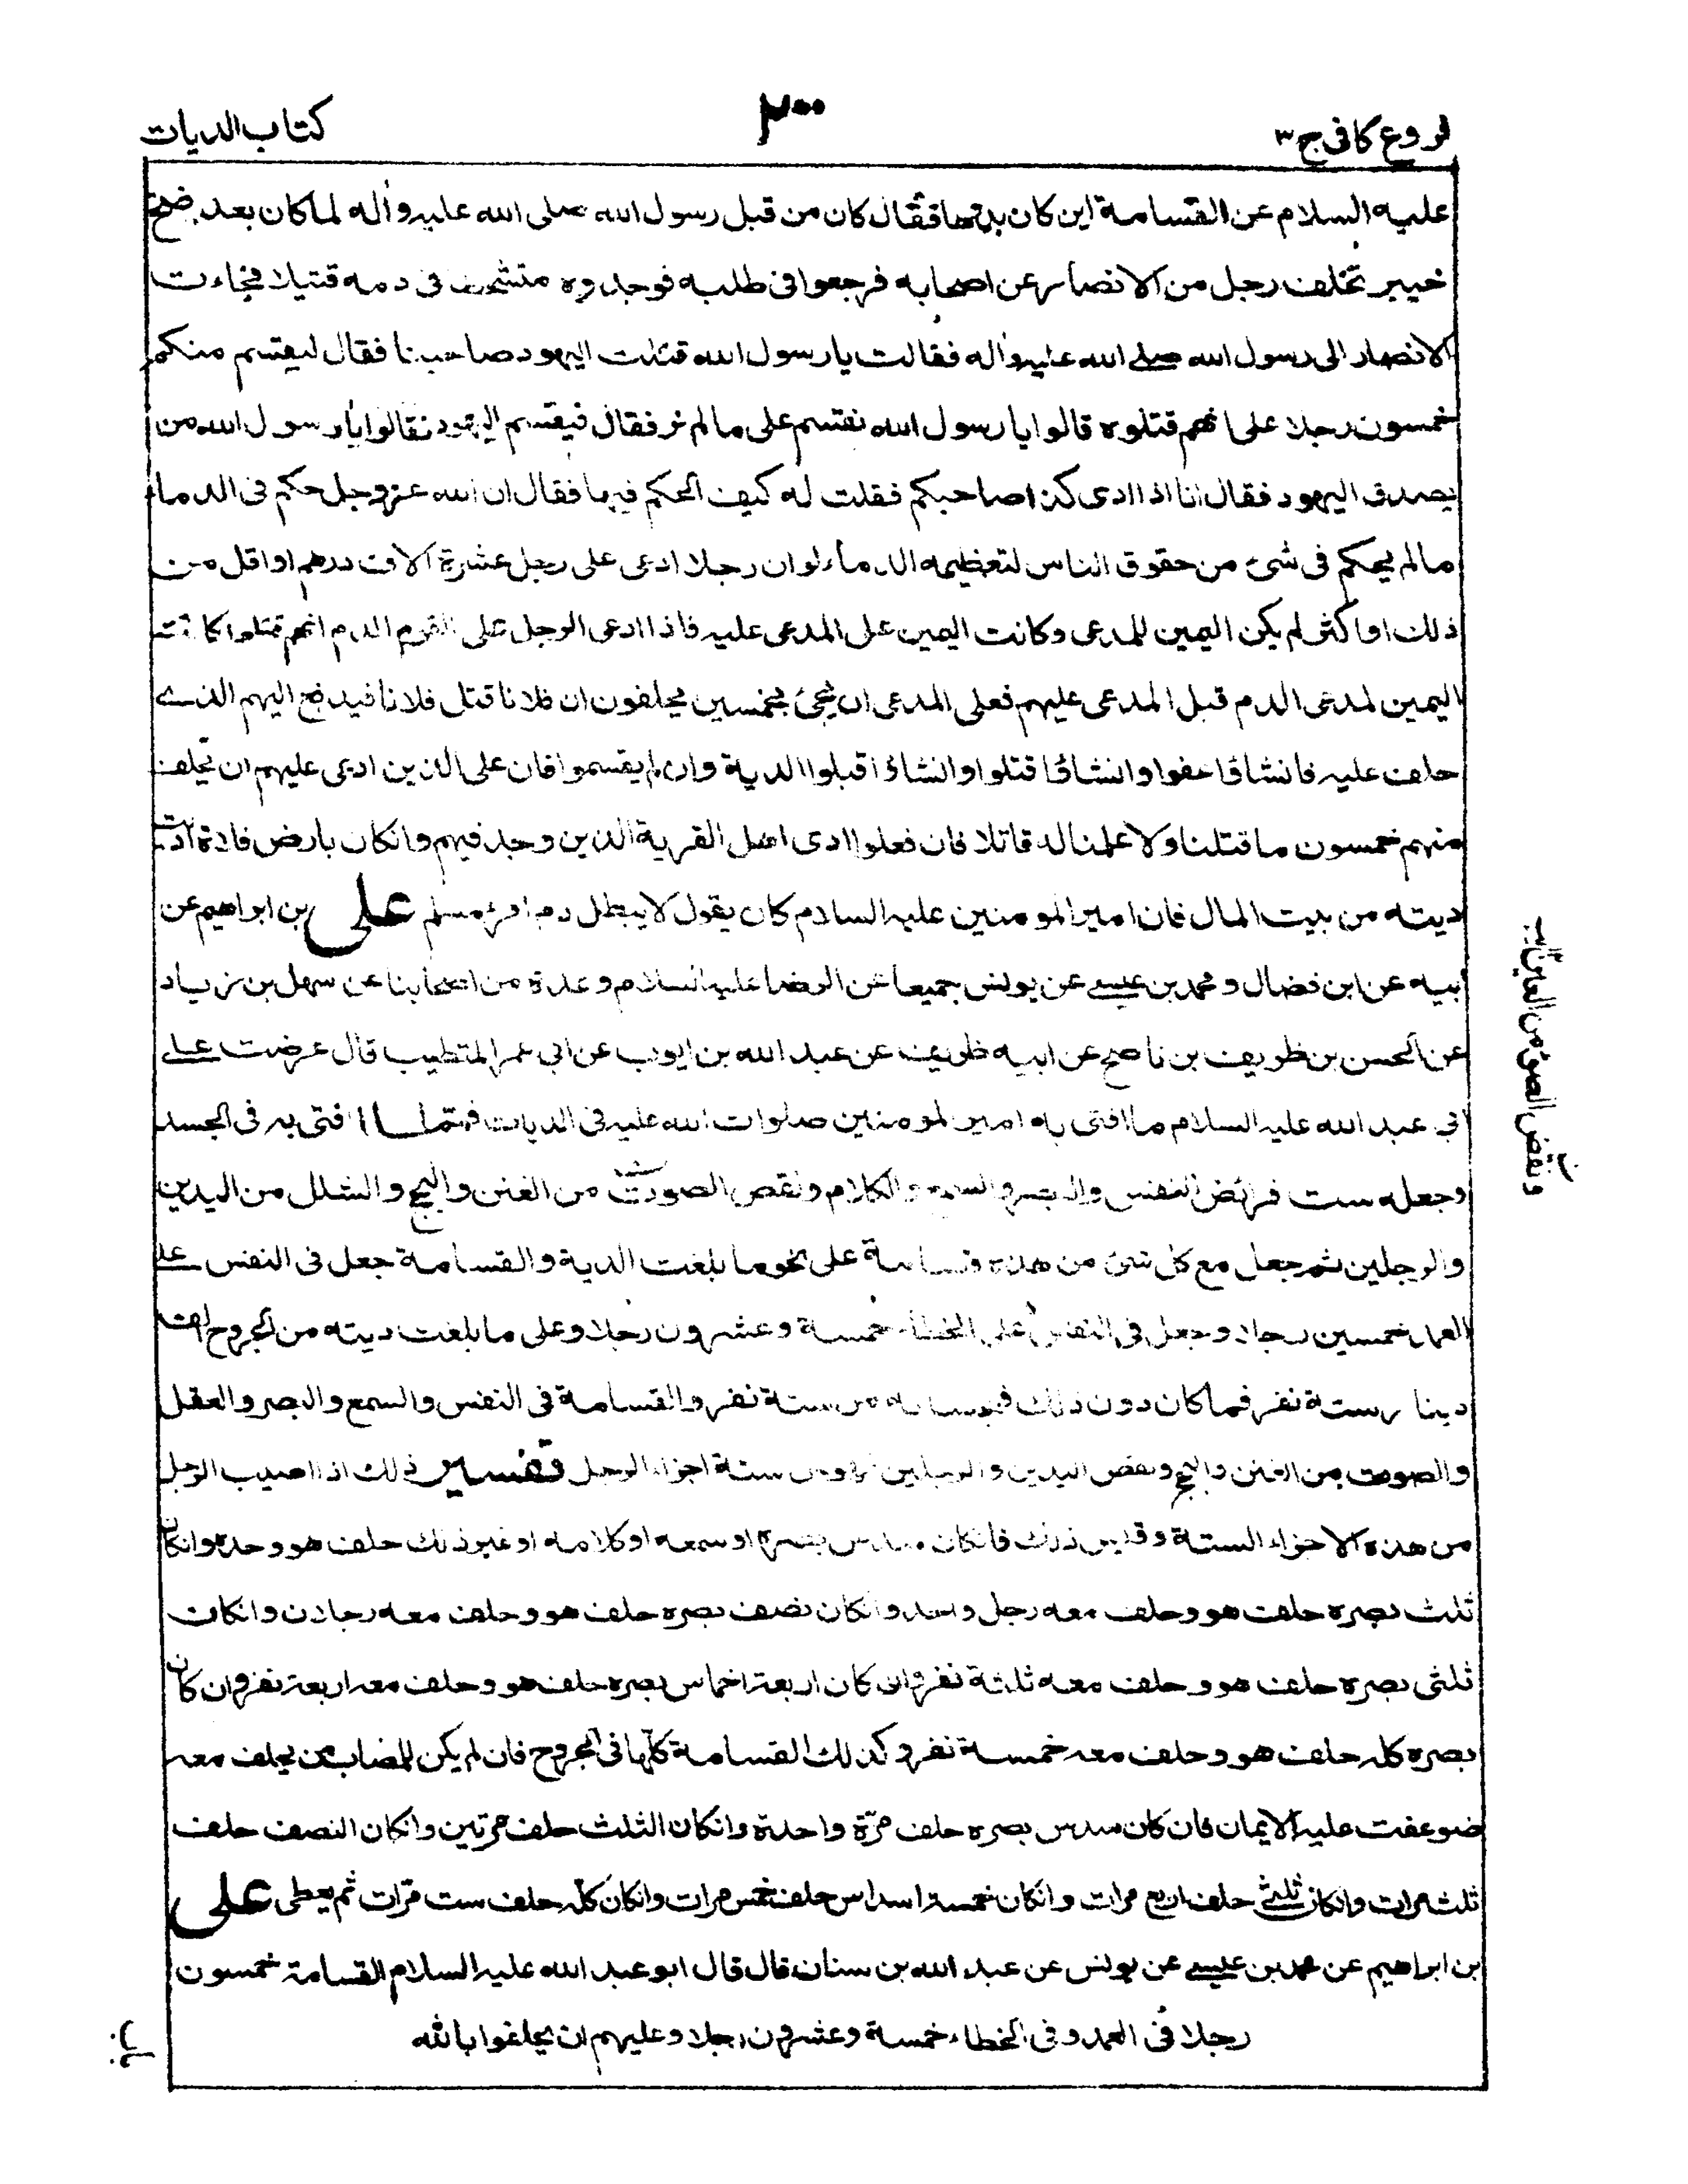 فروع كافى ج ٣
٢٠٠
كتاب الديات
عليه السلام عن القسامة اين كان بدؤها فقال كان من قبل رسول الله صلى الله عليه واله لما كان بعد فتح
خيبر تخلف رجل من الانصار عن اصحابه فرجعوا فى طلبه فوجدوه متشحطا فى دمه قتيلا فجاءت
الانصار الى رسول الله صلے الله عليه واله فقالت يا رسول الله قتلت اليهود صاحبنا فقال ليقسم منكم
خمسون رجلا على انهم قتلوه قالوا يا رسول الله نقتسم على مالم نر فقال فيقتسم اليهود فقالوا يا رسول الله من
يصدق اليهود فقال انا اذا ادى كذا صاحبكم فقلت له كيف الحكم فيها فقال ان الله عزوجل حكم فى الدماء
مالم يحكم فى شئ من حقوق الناس لتعظيمه الدماء لو ان رجلا ادعى على رجل عشرة الاف درهم او اقل من
ذلك او اكثر لم يكن اليمين للمدعى وكانت اليمين على المدعى عليه فاذا ادعى الرجل على القوم الدم انهم قتلوا كانت
اليمين لمدعى الدم قبل المدعى عليهم فعلى المدعى ان يجئ بخمسين يحلفون ان فلانا قتل فلانا فيدفع اليهم الذے
حلف عليه فانشاؤا عفوا وانشاؤا قتلوا وانشاؤا قبلوا الدية وان لم يقسموا فان على الذين ادعى عليهم ان يحلف
منهم خمسون ما قتلنا ولا علمنا له قاتلا فان فعلوا ادى اهل القرية الذين وجد فيهم وانكان بارض فلاة اديت
ديته من بيت المال فان امير المومنين عليه السلام كان يقول لا يبطل دم امرئ مسلم على بن ابراهيم عن
ابيه عن ابن فضال ومحمد بن عيسے عن يونس جميعا عن الرضا عليه السلام وعدة من اصحابنا عن سهل بن زياد
عن الحسن بن ظريف بن ناصح عن ابيه ظريف عن عبد الله بن ايوب عن ابى عمر المتطبب قال عرضت علے
ابى عبد الله عليه السلام ما افتى به امير المومنين صلوات الله عليه فى الديات فمما افتى به فى الجسد
وجعله ست فرائض النفس والبصر والسمع والكلام ونقص الصوت من الغنن والبحح والشلل من اليدين
والرجلين ثم جعل مع كل شئ من هذه قسامة على نحو ما بلغت الدية والقسامة جعل فى النفس علے
العمد خمسين رجلا وجعل فى النفس على الخطاء خمسة وعشرون رجلا وعلى ما بلغت ديته من الجروح الف
دينار ستة نفر فما كان دون ذلك فبحسابه من ستة نفر والقسامة فى النفس والسمع والبصر والعقل
والصوت من الغنن والبحح ونقص اليدين والرجلين فهو من ستة اجزاء الرجل تفسير ذلك اذا اصيب الرجل
من هذه الاجزاء الستة وقيس ذلك فانكان سدس بصره او سمعه او كلامه او غير ذلك حلف هو وحده وانكان
ثلث بصره حلف هو وحلف معه رجل واحد وانكان نصف بصره حلف هو وحلف معه رجلان وانكان
ثلثى بصره حلف هو وحلف معه ثلثة نفر وان كان اربعة اخماس بصره حلف هو وحلف معه اربعة نفر وان كان
بصره كله حلف هو وحلف معه خمسة نفر وكذلك القسامة كلها فى الجروح فان لم يكن للمصاب من يحلف معه
ضوعفت عليه الايمان فان كان سدس بصره حلف مرّة واحدة وانكان الثلث حلف مرتين وانكان النصف حلف
ثلث مرات وانكان ثلثے حلف اربع مرات وانكان خمسة اسداس حلف خمس مرات وانكان كله حلف ست مرّات ثم يعطى على
بن ابراهيم عن محمد بن عيسے عن يونس عن عبد الله بن سنان قال قال ابو عبد الله عليه السلام القسامة خمسون
رجلا فى العمد وفى الخطاء خمسة وعشرون رجلا وعليهم ان يحلفوا بالله